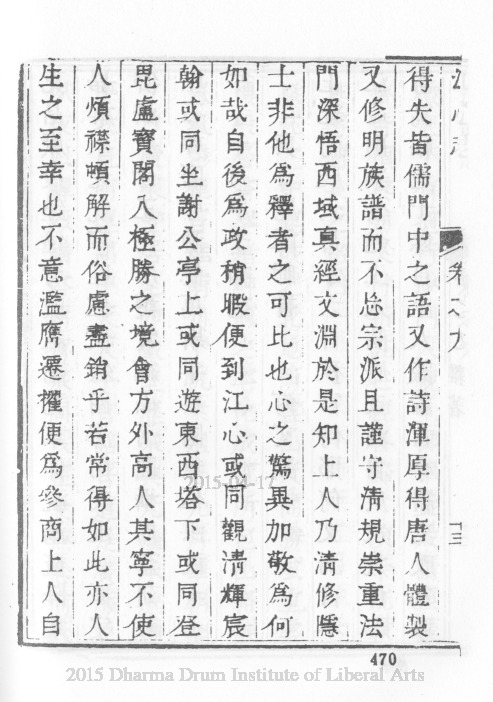 江心志
卷之九
十三
得失皆儒門中之語又作詩渾厚得唐人體製
又修明族譜而不忘宗派且謹守清規崇重法
門深悟西域真經文淵於是知上人乃清修隱
士非他為釋者之可比也心之驚異加敬為何
如哉自後為政稍暇便到江心或同觀清輝宸
翰或同坐謝公亭上或同遊東西塔下或同登
毘盧寶閣入極勝之境會方外高人其寧不使
人煩襟頓解而俗慮盡銷乎若常得如此亦人
生之至幸也不意濫膺遷擢便為參商上人自
2015-04-17
470
2015 Dharma Drum Institute of Liberal Arts